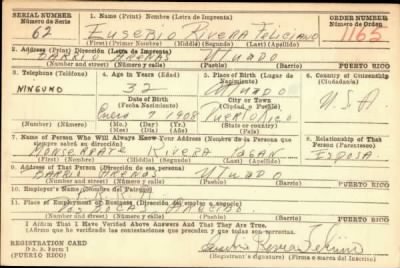 SERIAL NUMBER
Número de Serie
62
1. Name (Print) Nombre (Letra de Imprenta)
EUSEBIO RIVERA FELICIANO
(First) (Primer Nombre) (Middle) (Segundo) (Last) (Apellido)
ORDER NUMBER
Número de Orden
1165
2. Address (Print) Dirección (Letra de Imprenta)
BARRIO ARENAS UTUADO PUERTO RICO
(Number and street) (Número y calle) (Town) (Pueblo)
3. Telephone (Teléfono)
NINGUNO
4. Age in Years (Edad)
32
Date of Birth
(Fecha Nacimiento)
Enero 7 1908
(Mo.) (Day) (Yr.)
(Mes) (Día) (Año)
5. Place of Birth (Lugar de Nacimiento)
UTUADO
City or Town
(Ciudad o Pueblo)
PUERTO RICO
(State or country)
(País)
6. Country of Citizenship
(Ciudadanía)
U.S.A
7. Name of Person Who Will Always Know Your Address (Nombre de la Persona que siempre sabrá su dirección)
RIVERA
(First) (Primer Nombre) (Middle) (Segundo) (Last) (Apellido)
8. Relationship of That Person (Parentesco)
ESPOSA
9. Address of That Person (Dirección de esa persona)
BARRIO ARENAS UTUADO PUERTO RICO
(Number and street) (Número y calle) (Town) (Pueblo)
10. Employer's Name (Nombre del Patrono)
11. Place of Employment or Business (Dirección del empleo o negocio)
PUERTO RICO
(Number and street) (Número y calle) (Town) (Pueblo)
I Affirm That I Have Verified Above Answers and That They Are True.
Afirmo que he verificado las contestaciones que preceden y que todas son correctas.
REGISTRATION CARD
D.S. Form 1
(PUERTO RICO)
(Registrant's signature) (Firma o marca del Inscrito)